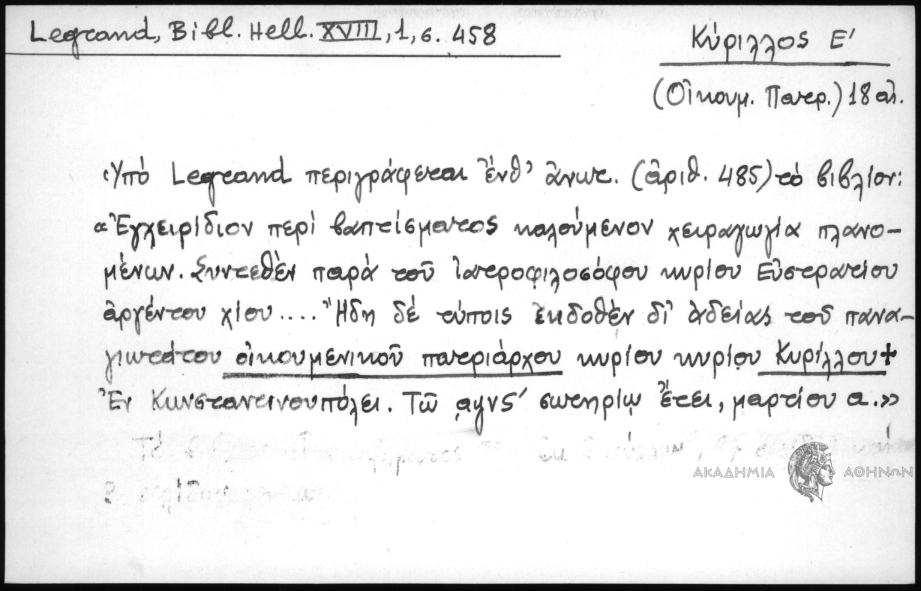 Legrand, Bibl. Hell. XVIII, 1, σ. 458
Κύριλλος Ε'
(Οἰκουμ. Πατρ.) 18 αἰ.
Ὑπό Legrand περιγράφεται ἔνθ' ἄνωτ. (ἀριθ. 485) τό βιβλίον:
«Ἐγχειρίδιον περί βαπτίσματος καλούμενον χειραγωγία πλανο-
μένων. Συντεθέν παρά τοῦ ἰατροφιλοσόφου κυρίου Εὐστρατίου
ἀργέντου χίου .... Ἤδη δέ τύποις ἐκδοθέν δι' ἀδείας τοῦ πανα-
γιωτάτου οἰκουμενικοῦ πατριάρχου κυρίου κυρίου Κυρίλλου +
Ἐν Κωνσταντινουπόλει. Τῶ ͵αψνϛ' σωτηρίῳ ἔτει, μαρτίου α.»
ΑΚΑΔΗΜΙΑ ΑΘΗΝΩΝ